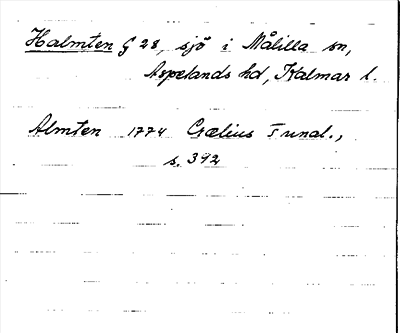 Halmten G 28, sjö i Målilla sn,
Aspelands hd, Kalmar l.
Almten 1774 Crælius Tunal.,
s. 392